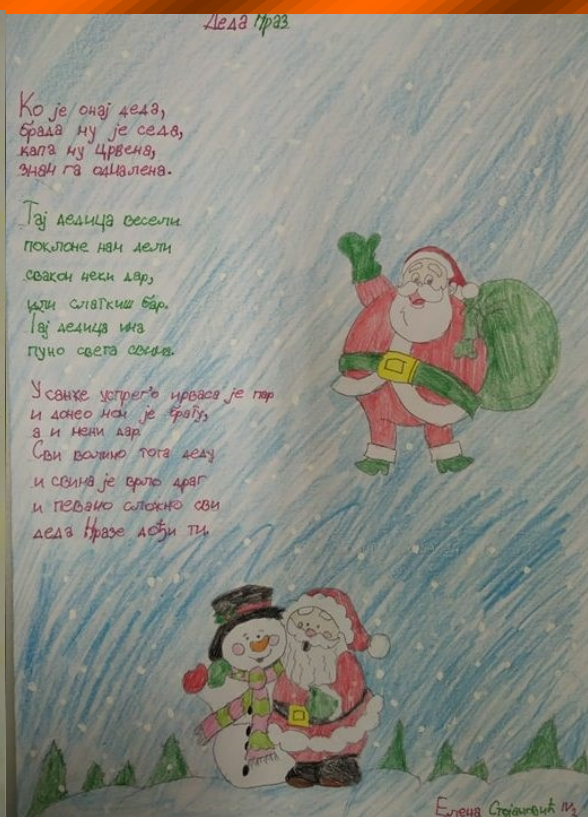 Деда Мраз
Ко је онај деда,
брада му је седа,
капа му црвена,
знам га одмалена.
Тај дедица весели
поклоне нам дели
сваком неки дар,
или слаткиш бар.
Тај дедица има
пуно света свима.
У санке упрег'о ирваса је пар
и донео мом је брату,
а и мени дар.
Сви волимо тога деду
и свима је врло драг
и певамо сложно сви
деда Мразе дођи ти.
Елена Стојановић IV2